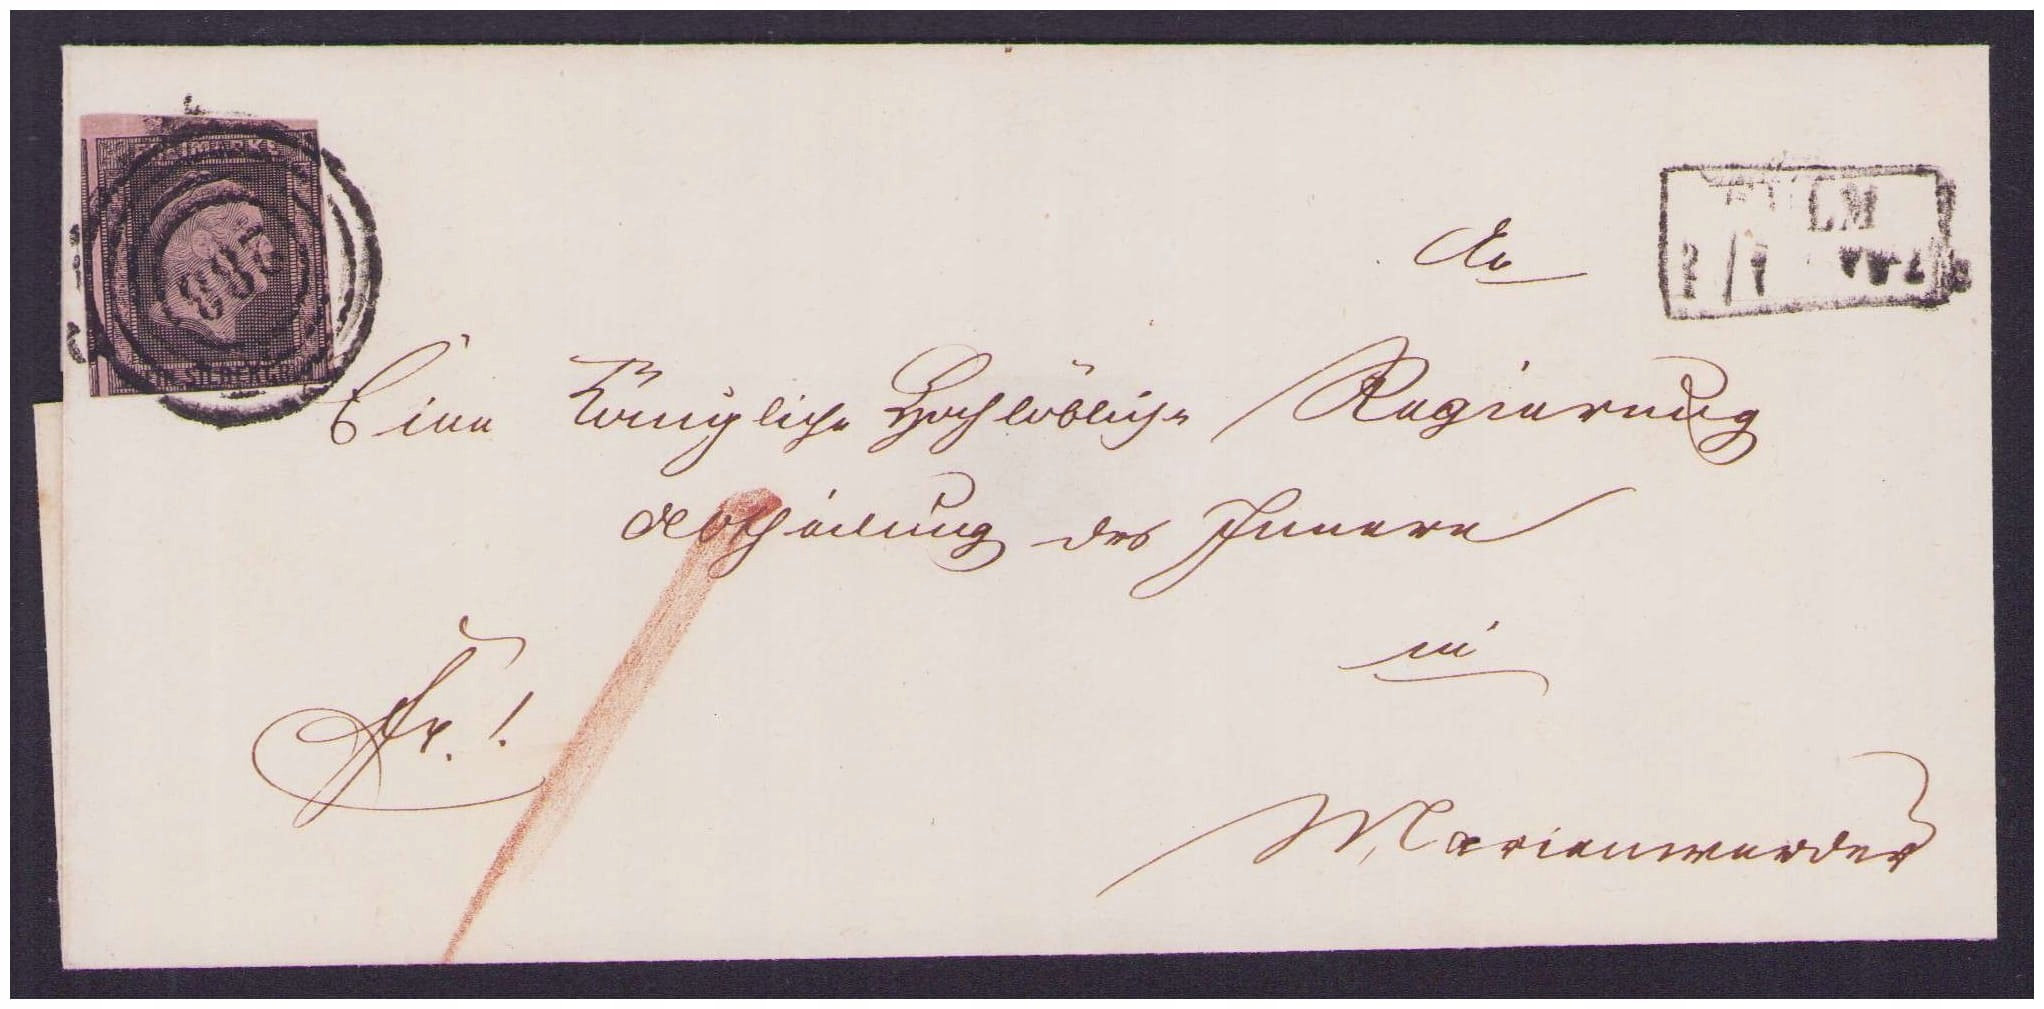 FREIMARKE
287
SILBERGR
CULM
An
Eine Königliche Hochlöbliche Regierung
Abtheilung des Innern
in
Fr. !
Marienwerder